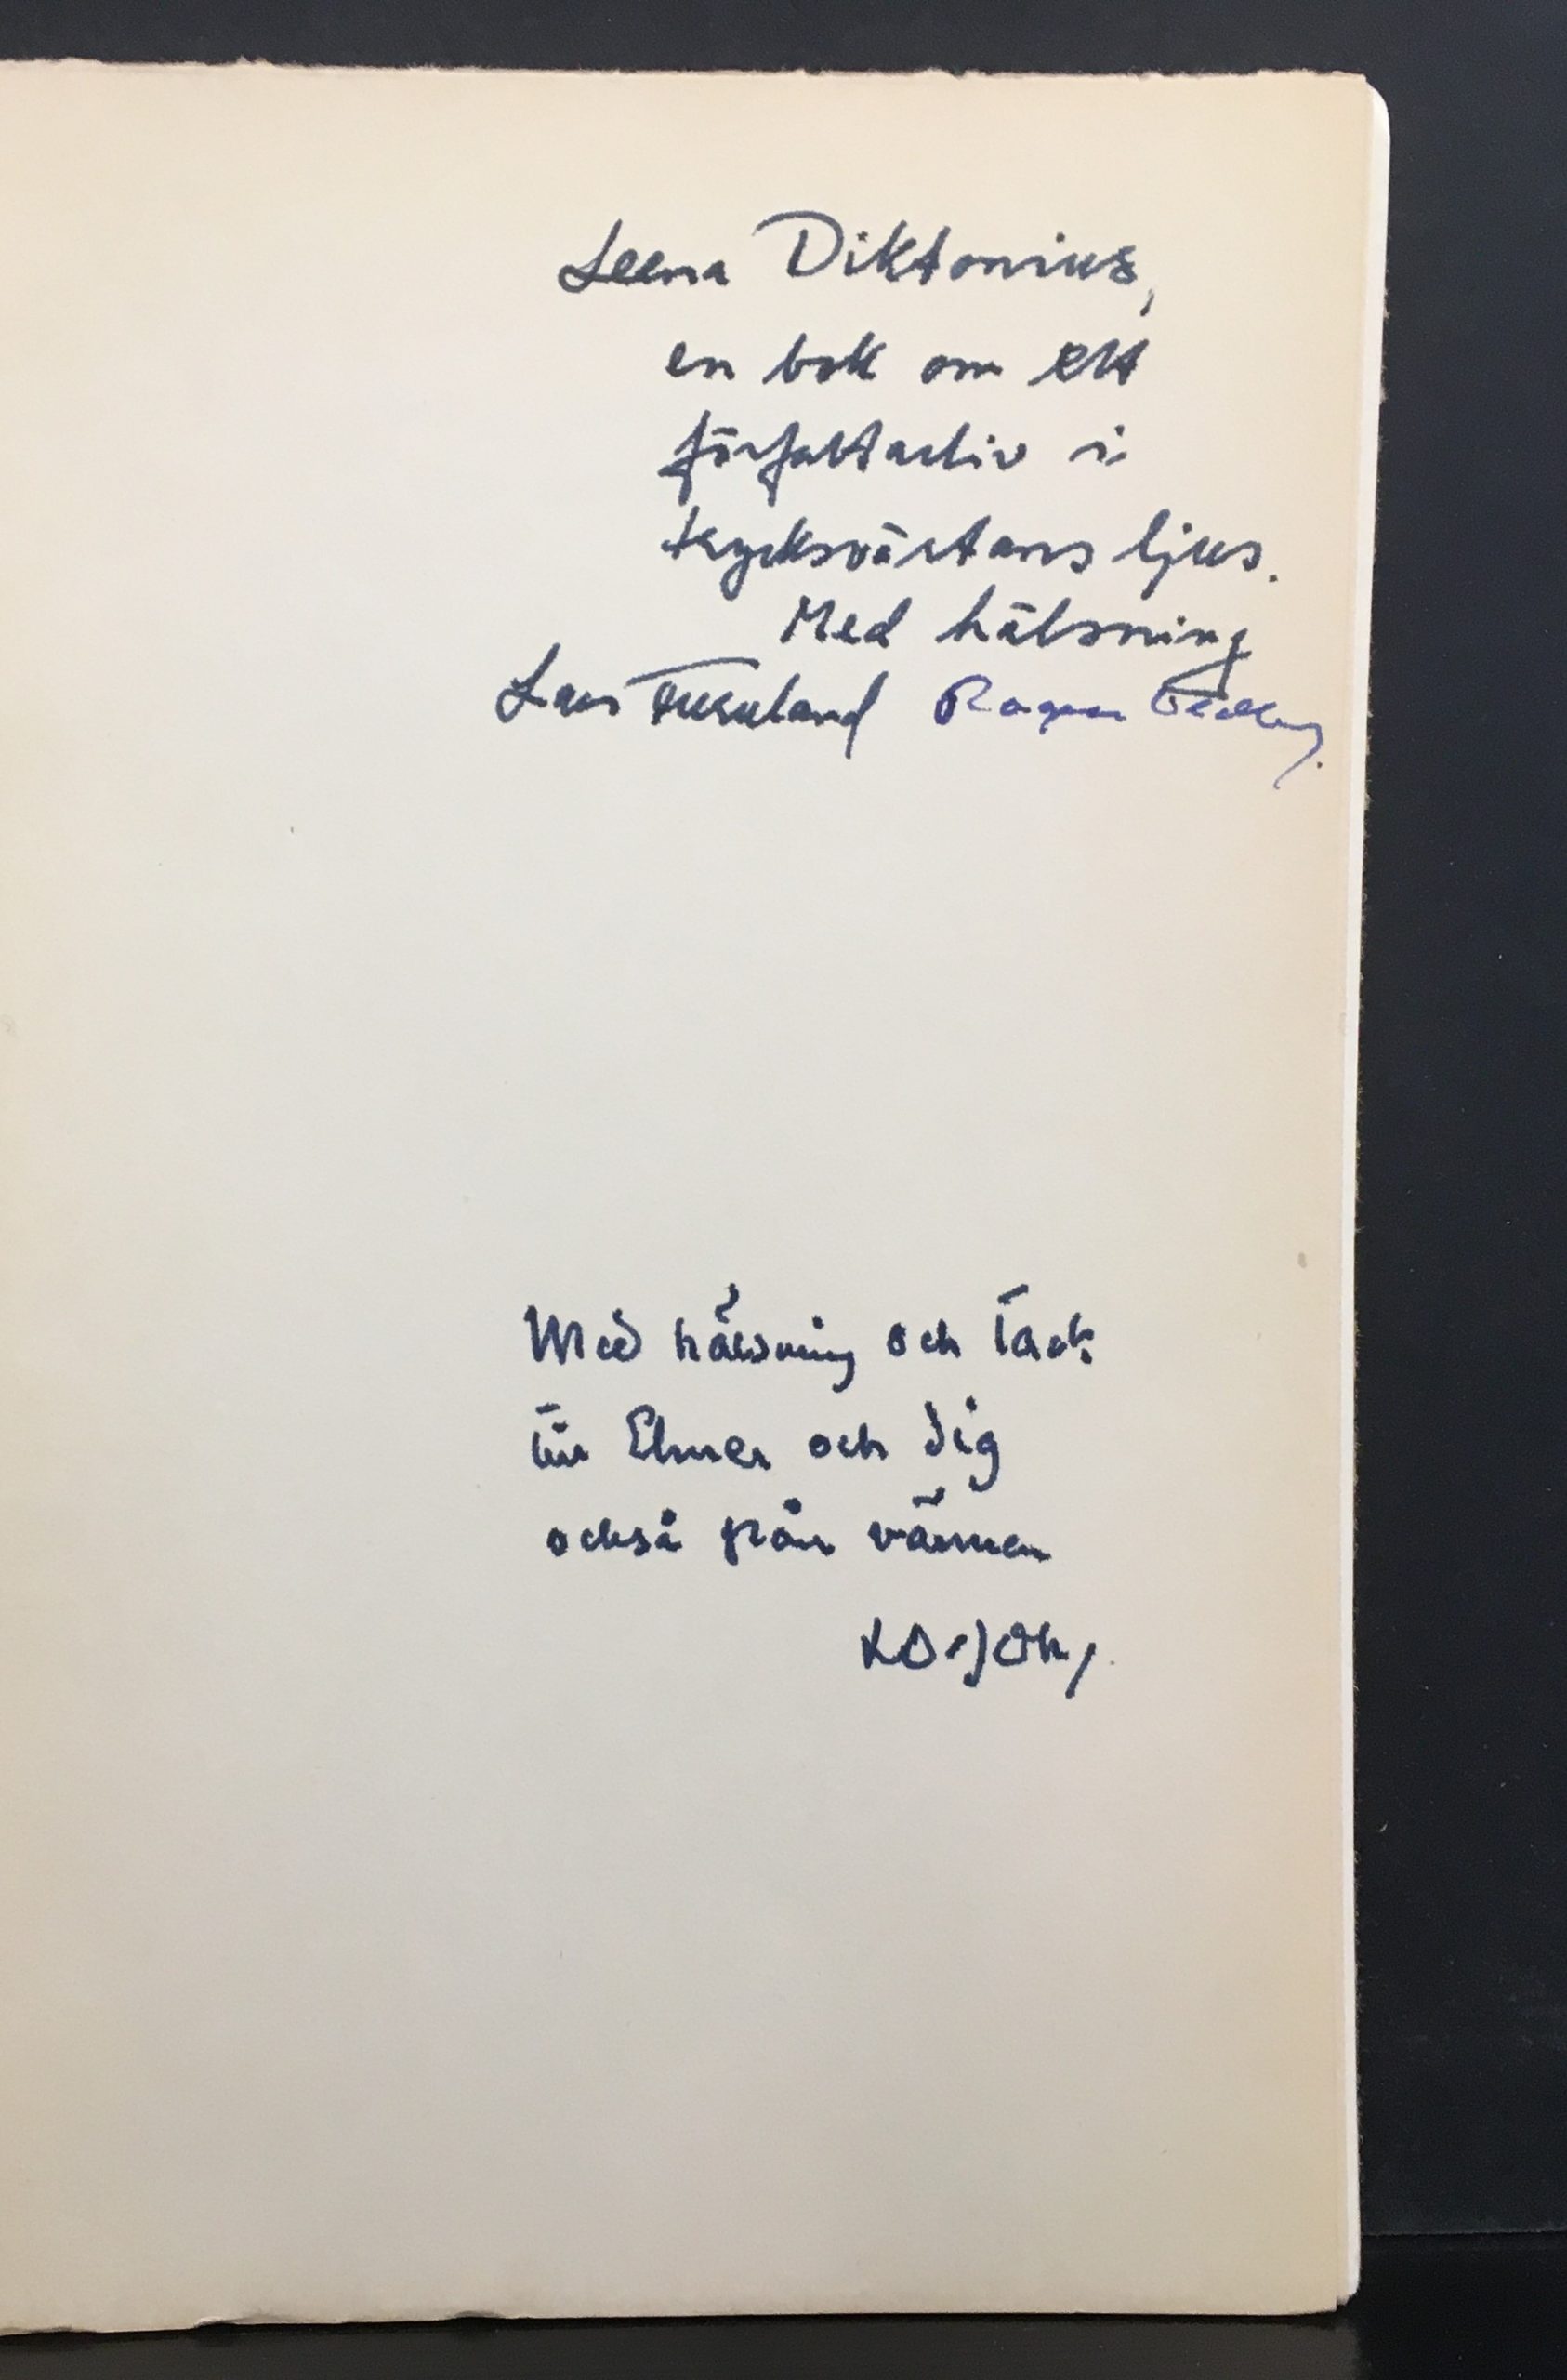 Leena Diktonius,
en bok om ett
författarliv i
trycksvärtans ljus.
Med hälsning
Lars Furuland Ragnar
Med hälsning och tack
till Elmer och Dig
också från vännen